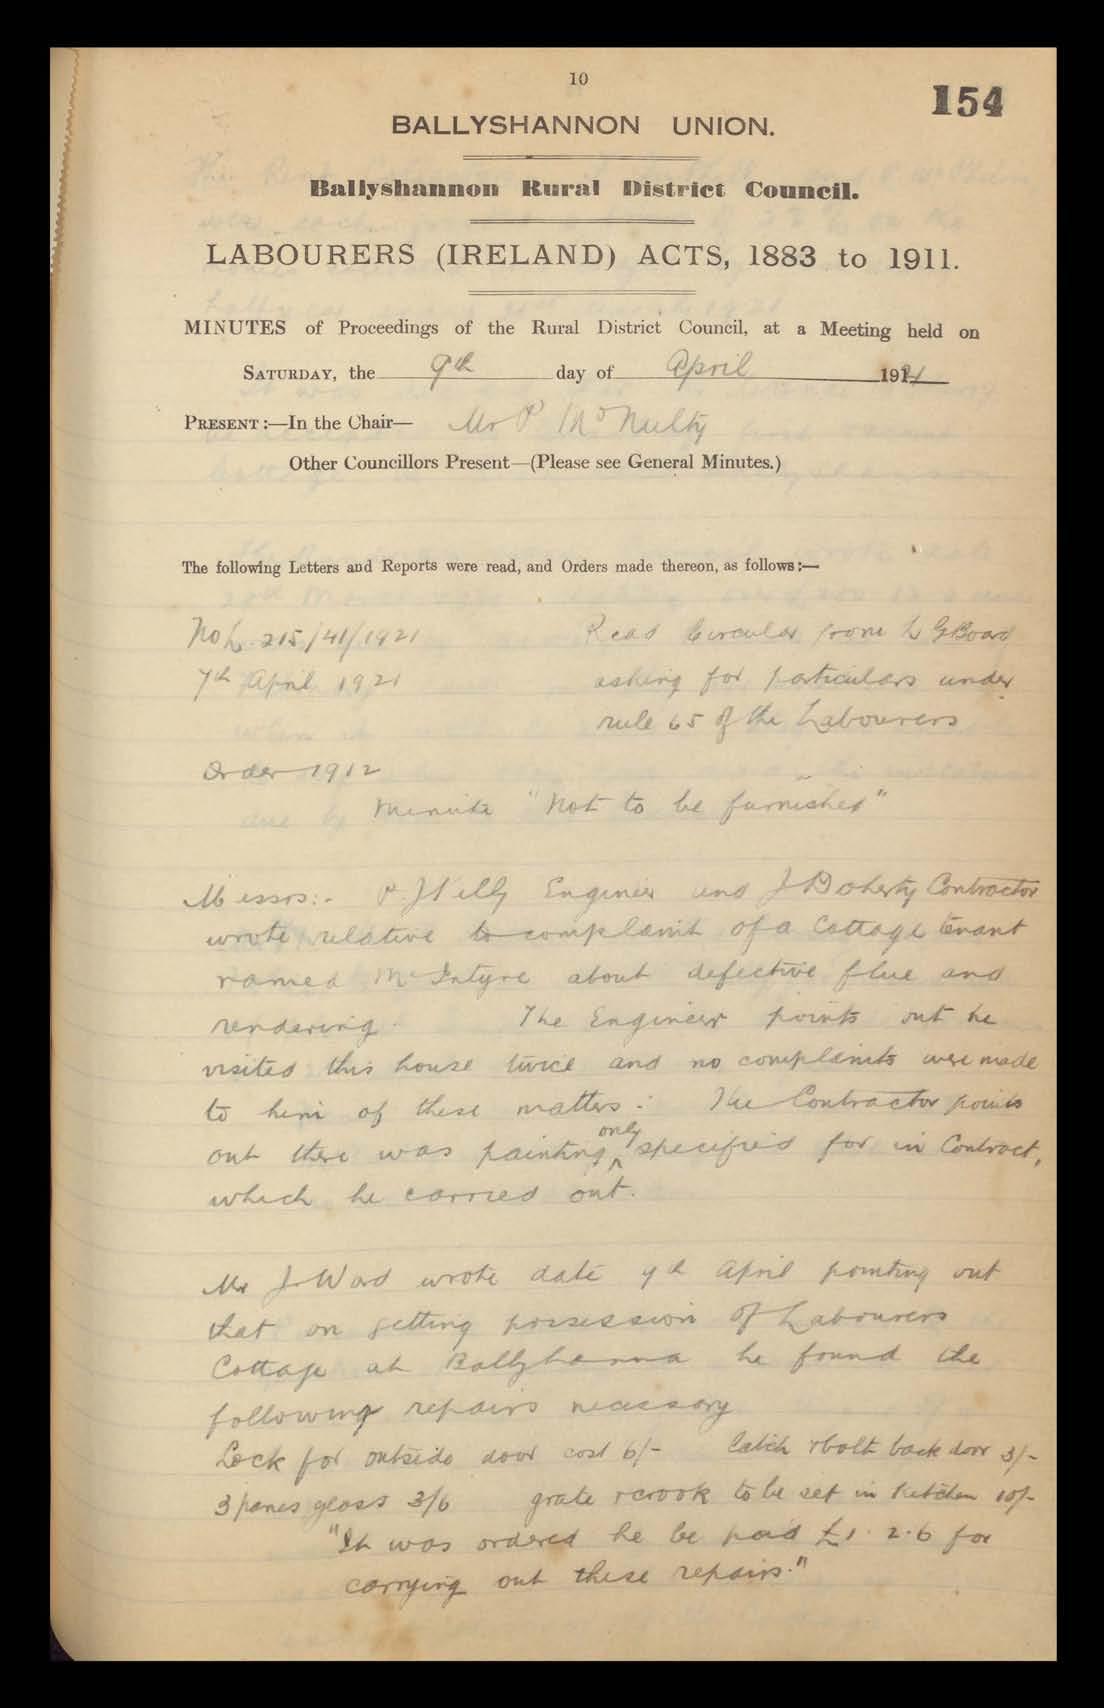 10
154
BALLYSHANNON UNION.
Ballyshannon Rural District Council.
LABOURERS (IRELAND) ACTS, 1883 to 1911.
MINUTES of Proceedings of the Rural District Council, at a Meeting held on
SATURDAY, the 9th day of April 1921
PRESENT:—In the Chair— Mr P McNulty
Other Councillors Present—(Please see General Minutes.)
The following Letters and Reports were read, and Orders made thereon, as follows:—
No L. 215/41/1921 Read Circular from L G Board
7th April 1921 asking for particulars under
rule 65 of the Labourers
Order 1912
Minute "Not to be furnished"
Messrs:- P. J Kelly Engineer and J Doherty Contractor
wrote relative to complaint of a Cottage tenant
named McIntyre about defective flue and
rendering. The Engineer points out he
visited this house twice and no complaints were made
to him of these matters: The Contractor points
out there was painting only specified for in Contract,
which he carried out.
Mr J Ward wrote date 7th April pointing out
that on getting possession of Labourers
Cottage at Ballyhanna he found the
following repairs necessary
Lock for outside door cost 6/- Catch & bolt back door 3/-
3 panes glass 3/6 grate & crook to be set in Kitchen 10/-
"It was ordered he be paid £1.2.6 for
carrying out these repairs."